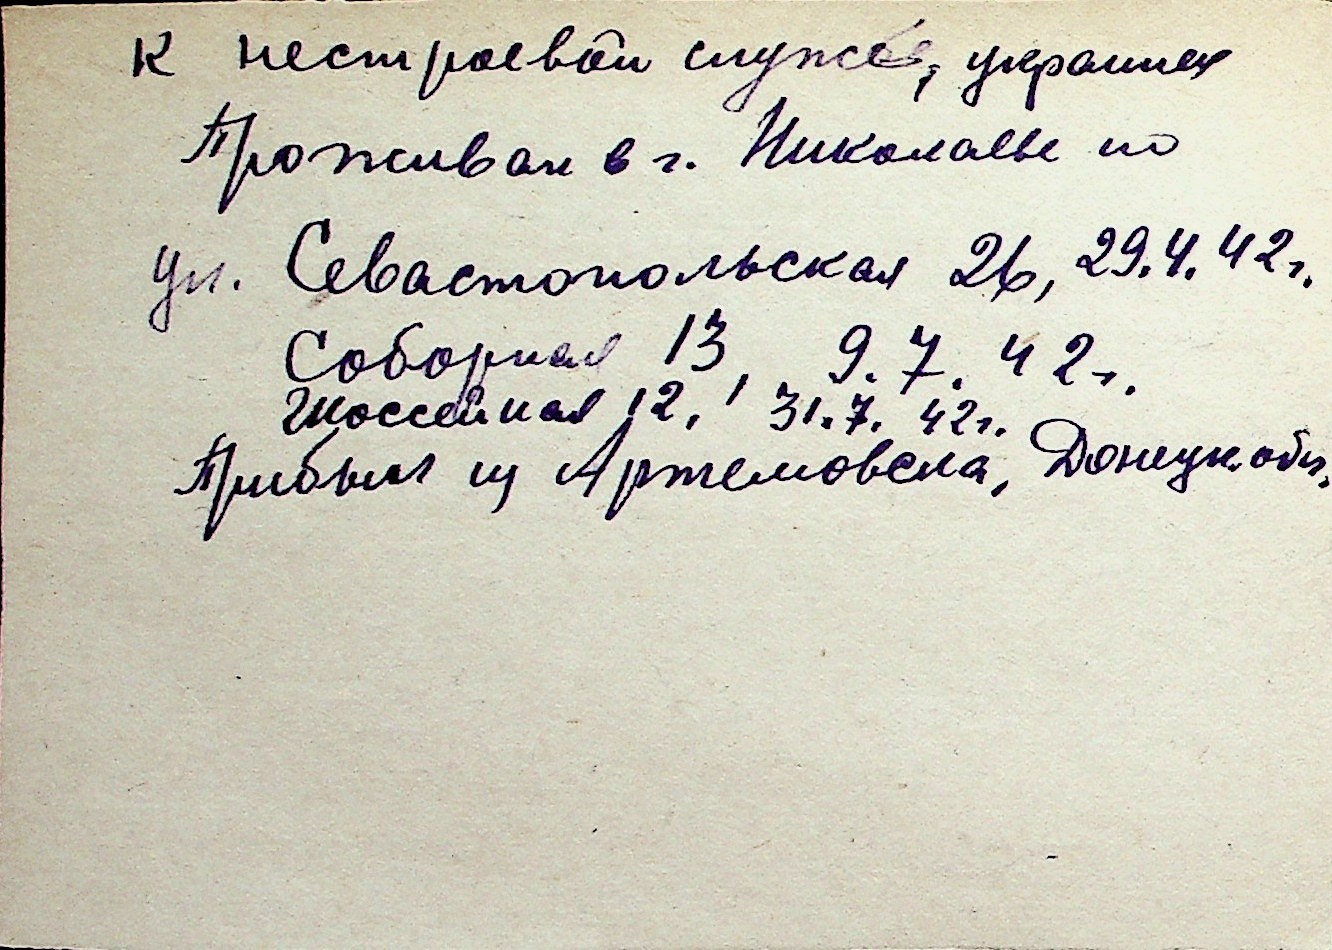 к нестроевой службе, украинец
Проживал в г. Николаеве по
ул. Севастопольская 26, 29.4.42г.
Соборная 13, 9.7.42г.
Шоссейная 12, 31.7.42г.
Прибыл из Артемовска, Донецк. обл.